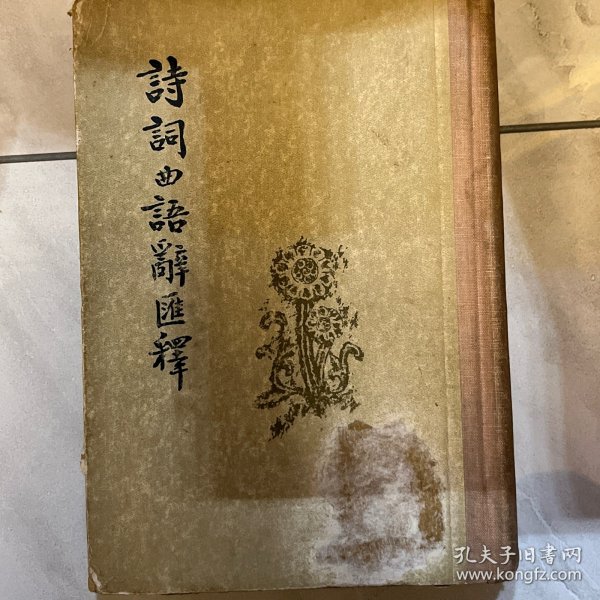 詩詞曲語辭匯釋
孔夫子旧书网
www.kongfz.com